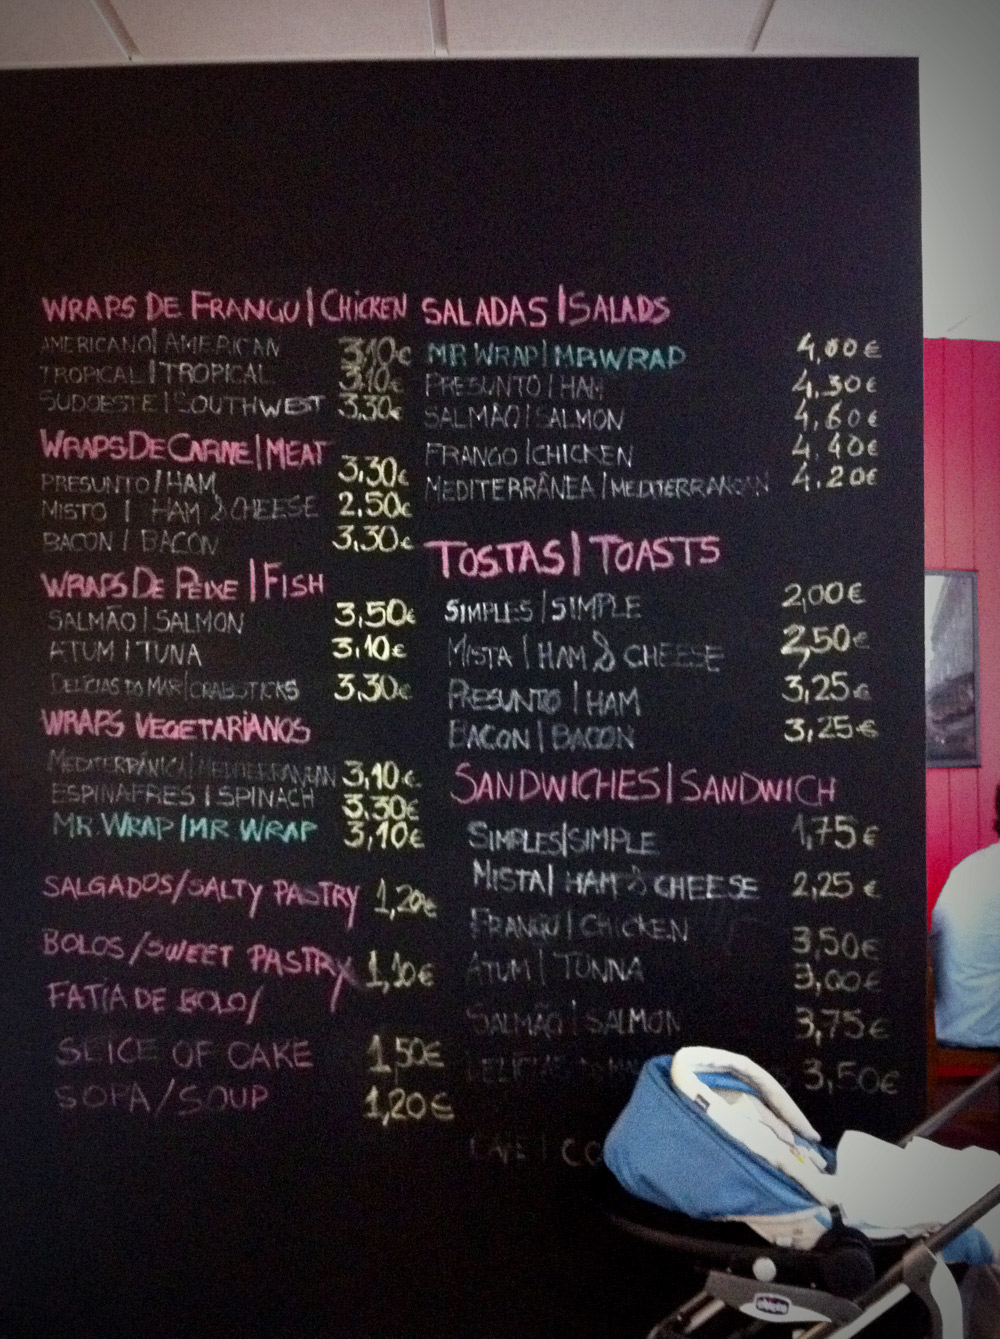 WRAPS DE FRANGO | CHICKEN
AMERICANO | AMERICAN 3,10€
TROPICAL | TROPICAL 3,10€
SUDOESTE | SOUTHWEST 3,30€
WRAPS DE CARNE | MEAT
PRESUNTO | HAM 3,30€
MISTO | HAM & CHEESE 2,50€
BACON | BACON 3,30€
WRAPS DE PEIXE | FISH
SALMÃO | SALMON 3,50€
ATUM | TUNA 3,10€
DELÍCIAS DO MAR | CRABSTICKS 3,30€
WRAPS VEGETARIANOS
MEDITERRÂNICA | MEDITERRANEAN 3,10€
ESPINAFRES | SPINACH 3,30€
MR WRAP | MR WRAP 3,10€
SALGADOS/SALTY PASTRY 1,20€
BOLOS/SWEET PASTRY 1,10€
FATIA DE BOLO/
SLICE OF CAKE 1,50€
SOPA/SOUP 1,20€
SALADAS | SALADS
MR WRAP | MR WRAP 4,00€
PRESUNTO | HAM 4.30€
SALMÃO | SALMON 4,60€
FRANGO | CHICKEN 4.40€
MEDITERRÂNEA | MEDITERRANEAN 4.20€
TOSTAS | TOASTS
SIMPLES | SIMPLE 2,00€
MISTA | HAM & CHEESE 2,50€
PRESUNTO | HAM 3,25€
BACON | BACON 3,25€
SANDWICHES | SANDWICH
SIMPLES | SIMPLE 1,75€
MISTA | HAM & CHEESE 2,25€
FRANGO | CHICKEN 3,50€
ATUM | TUNNA 3,00€
SALMÃO | SALMON 3,75€
DELÍCIAS DO 3,50€
CAFÉ |
chicco